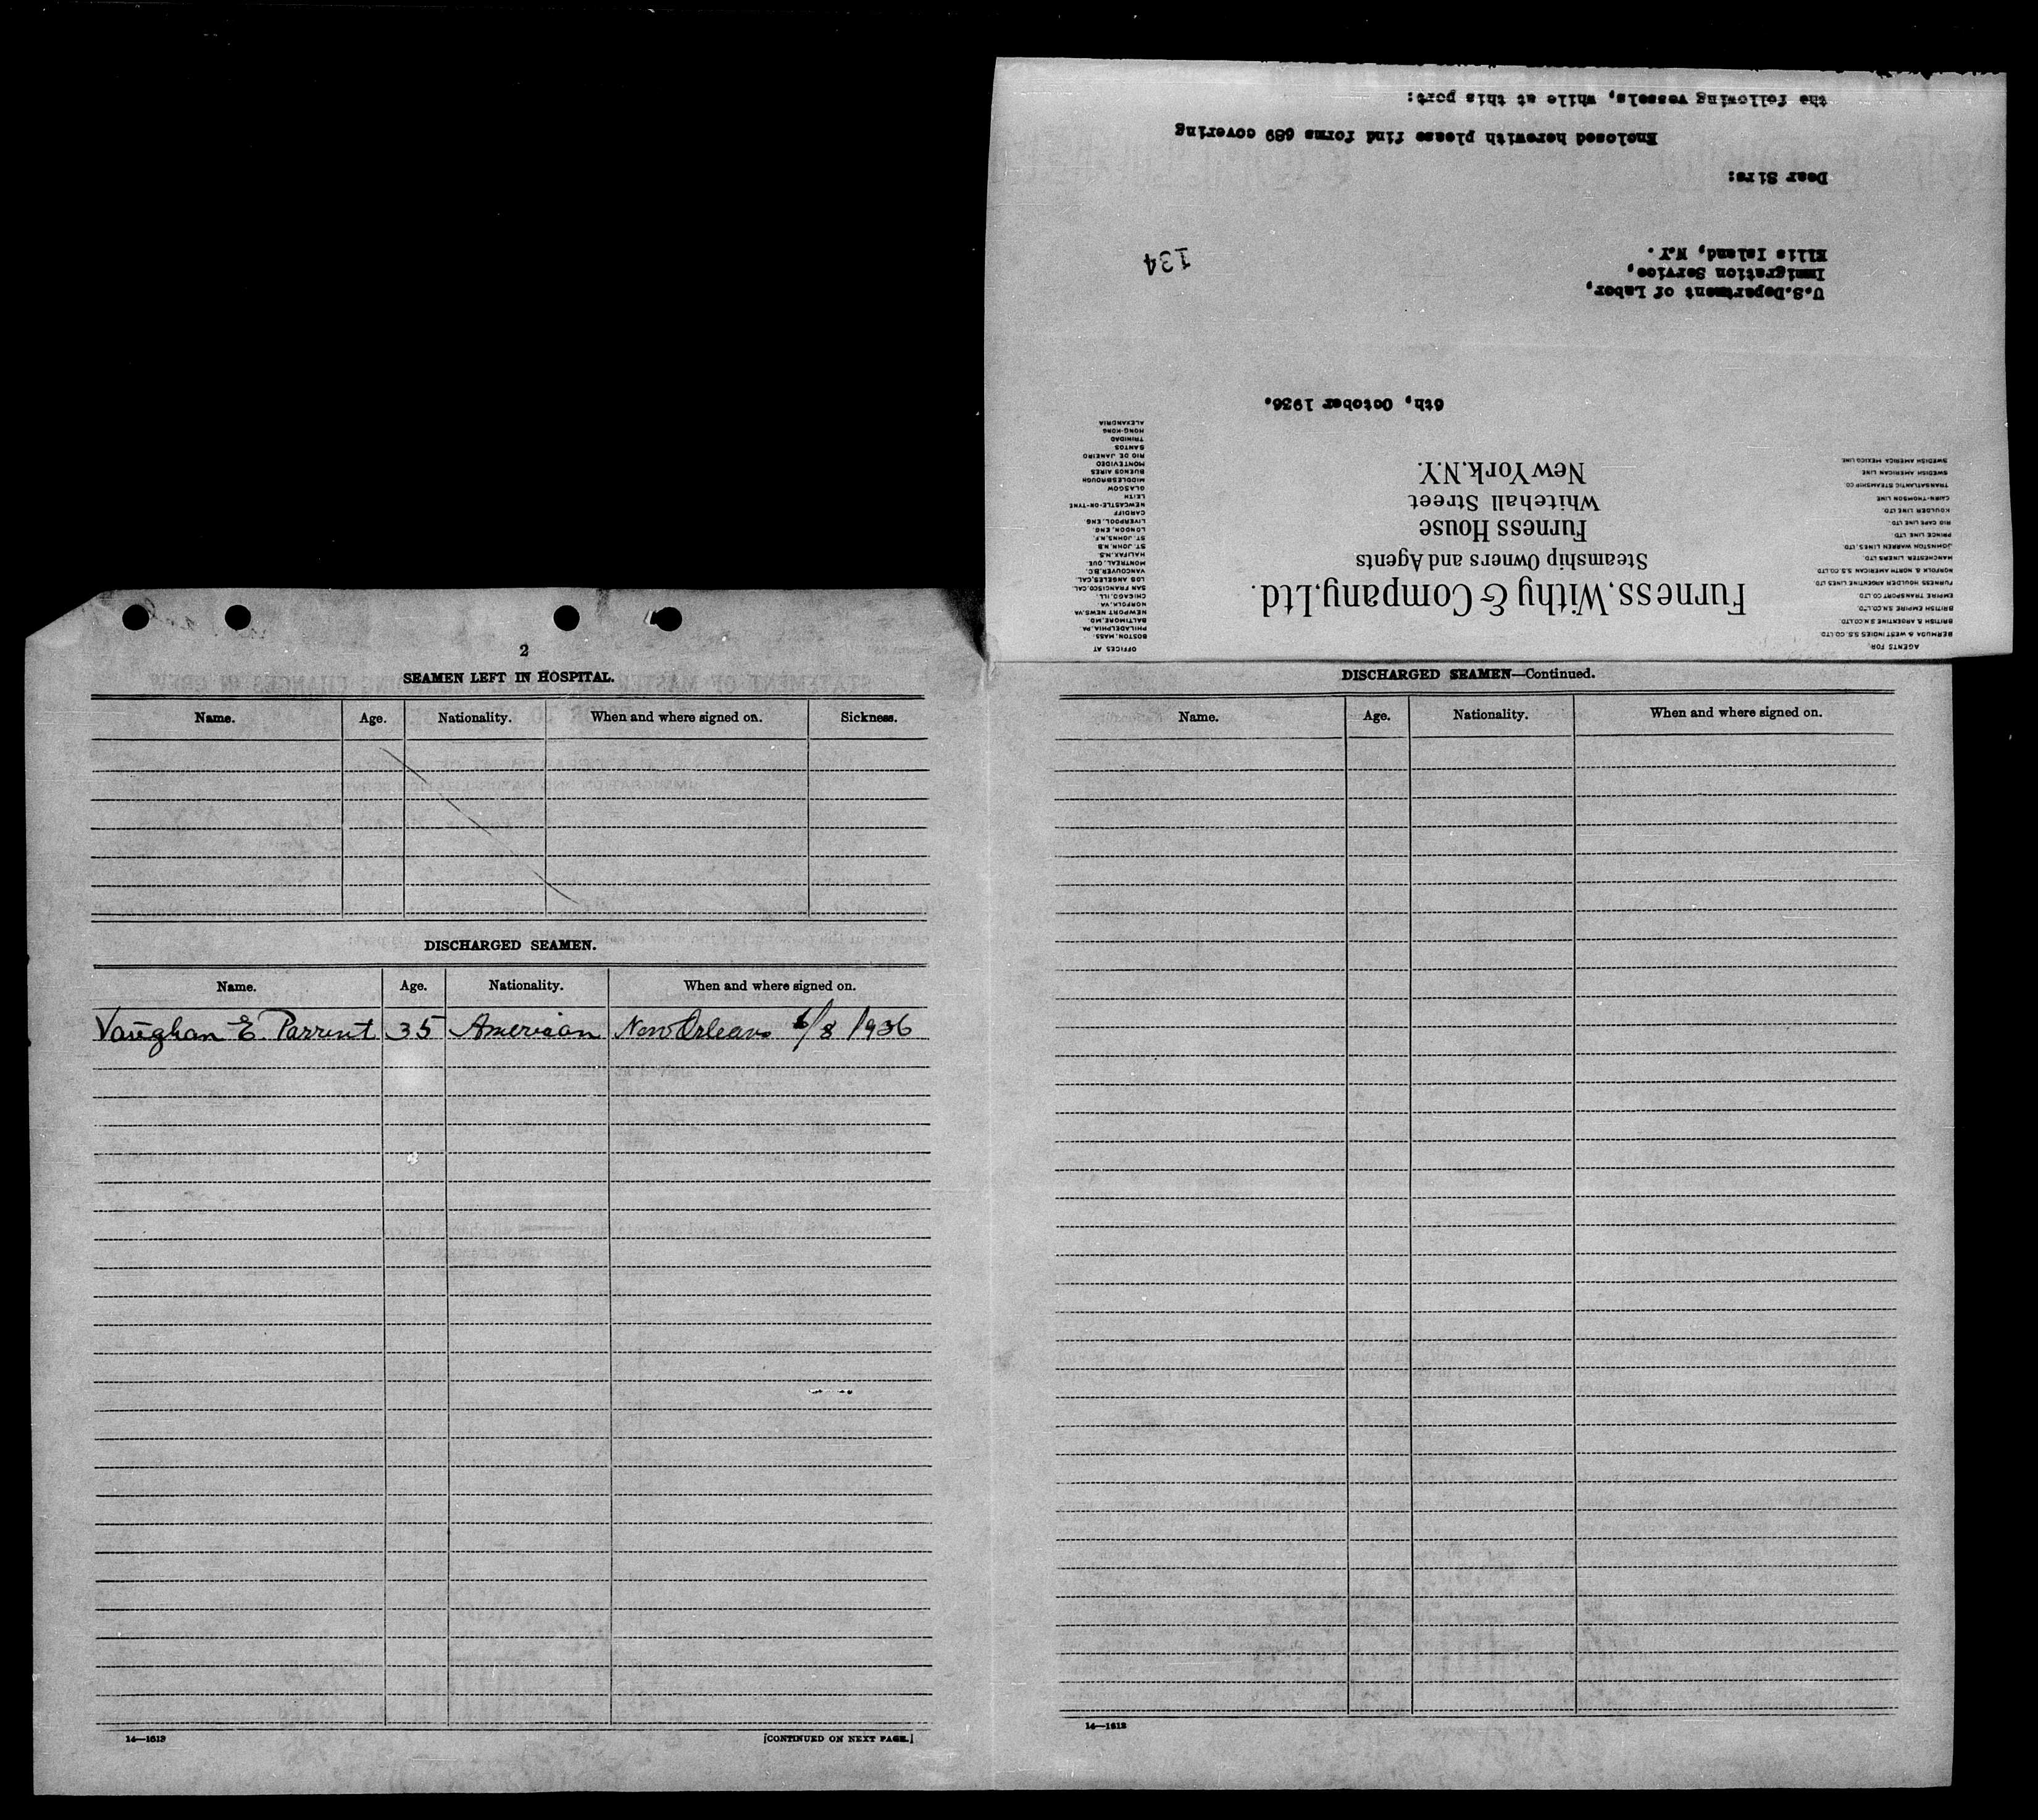 2
SEAMEN LEFT IN HOSPITAL.
Name. Age. Nationality. When and where signed on. Sickness.
DISCHARGED SEAMEN.
Name. Age. Nationality. When and where signed on.
Vaughan E. Parrent 35 American New Orleans /8 1936
14—1613
[CONTINUED ON NEXT PAGE.]
DISCHARGED SEAMEN—Continued.
Name. Age. Nationality. When and where signed on.
14—1613
AGENTS FOR
BERMUDA & WEST INDIES S.S. CO. LTD.
BRITISH & ARGENTINE S.N. CO. LTD.
BRITISH EMPIRE S.N. CO. LTD.
EMPIRE TRANSPORT CO. LTD.
FURNESS HOULDER ARGENTINE LINES LTD.
NORFOLK & NORTH AMERICAN S.S. CO. LTD.
MANCHESTER LINERS LTD.
JOHNSTON WARREN LINES, LTD.
PRINCE LINE LTD.
RIO CAPE LINE LTD.
HOULDER LINE LTD.
CAIRN-THOMSON LINE
TRANSATLANTIC STEAMSHIP CO.
SWEDISH AMERICAN LINE
SWEDISH AMERICA MEXICO LINE
Furness, Withy & Company, Ltd.
Steamship Owners and Agents
Furness House
Whitehall Street
New York, N.Y.
OFFICES AT
BOSTON, MASS.
PHILADELPHIA, PA.
BALTIMORE, MD.
NEWPORT NEWS, VA.
NORFOLK, VA.
CHICAGO, ILL.
SAN FRANCISCO, CAL.
LOS ANGELES, CAL.
VANCOUVER, B.C.
MONTREAL, QUE.
HALIFAX, N.S.
ST. JOHN, N.B.
ST. JOHNS, N.F.
LONDON, ENG.
LIVERPOOL, ENG.
CARDIFF
NEWCASTLE-ON-TYNE
LEITH
GLASGOW
MIDDLESBROUGH
BUENOS AIRES
MONTEVIDEO
RIO DE JANEIRO
SANTOS
TRINIDAD
HONG-KONG
ALEXANDRIA
6th, October 1936.
U.S.Department of Labor,
Immigration Service,
Ellis Island, N.Y.
134
Dear Sirs:
Enclosed herewith please find forms 689 covering
the following vessels, while at this port: